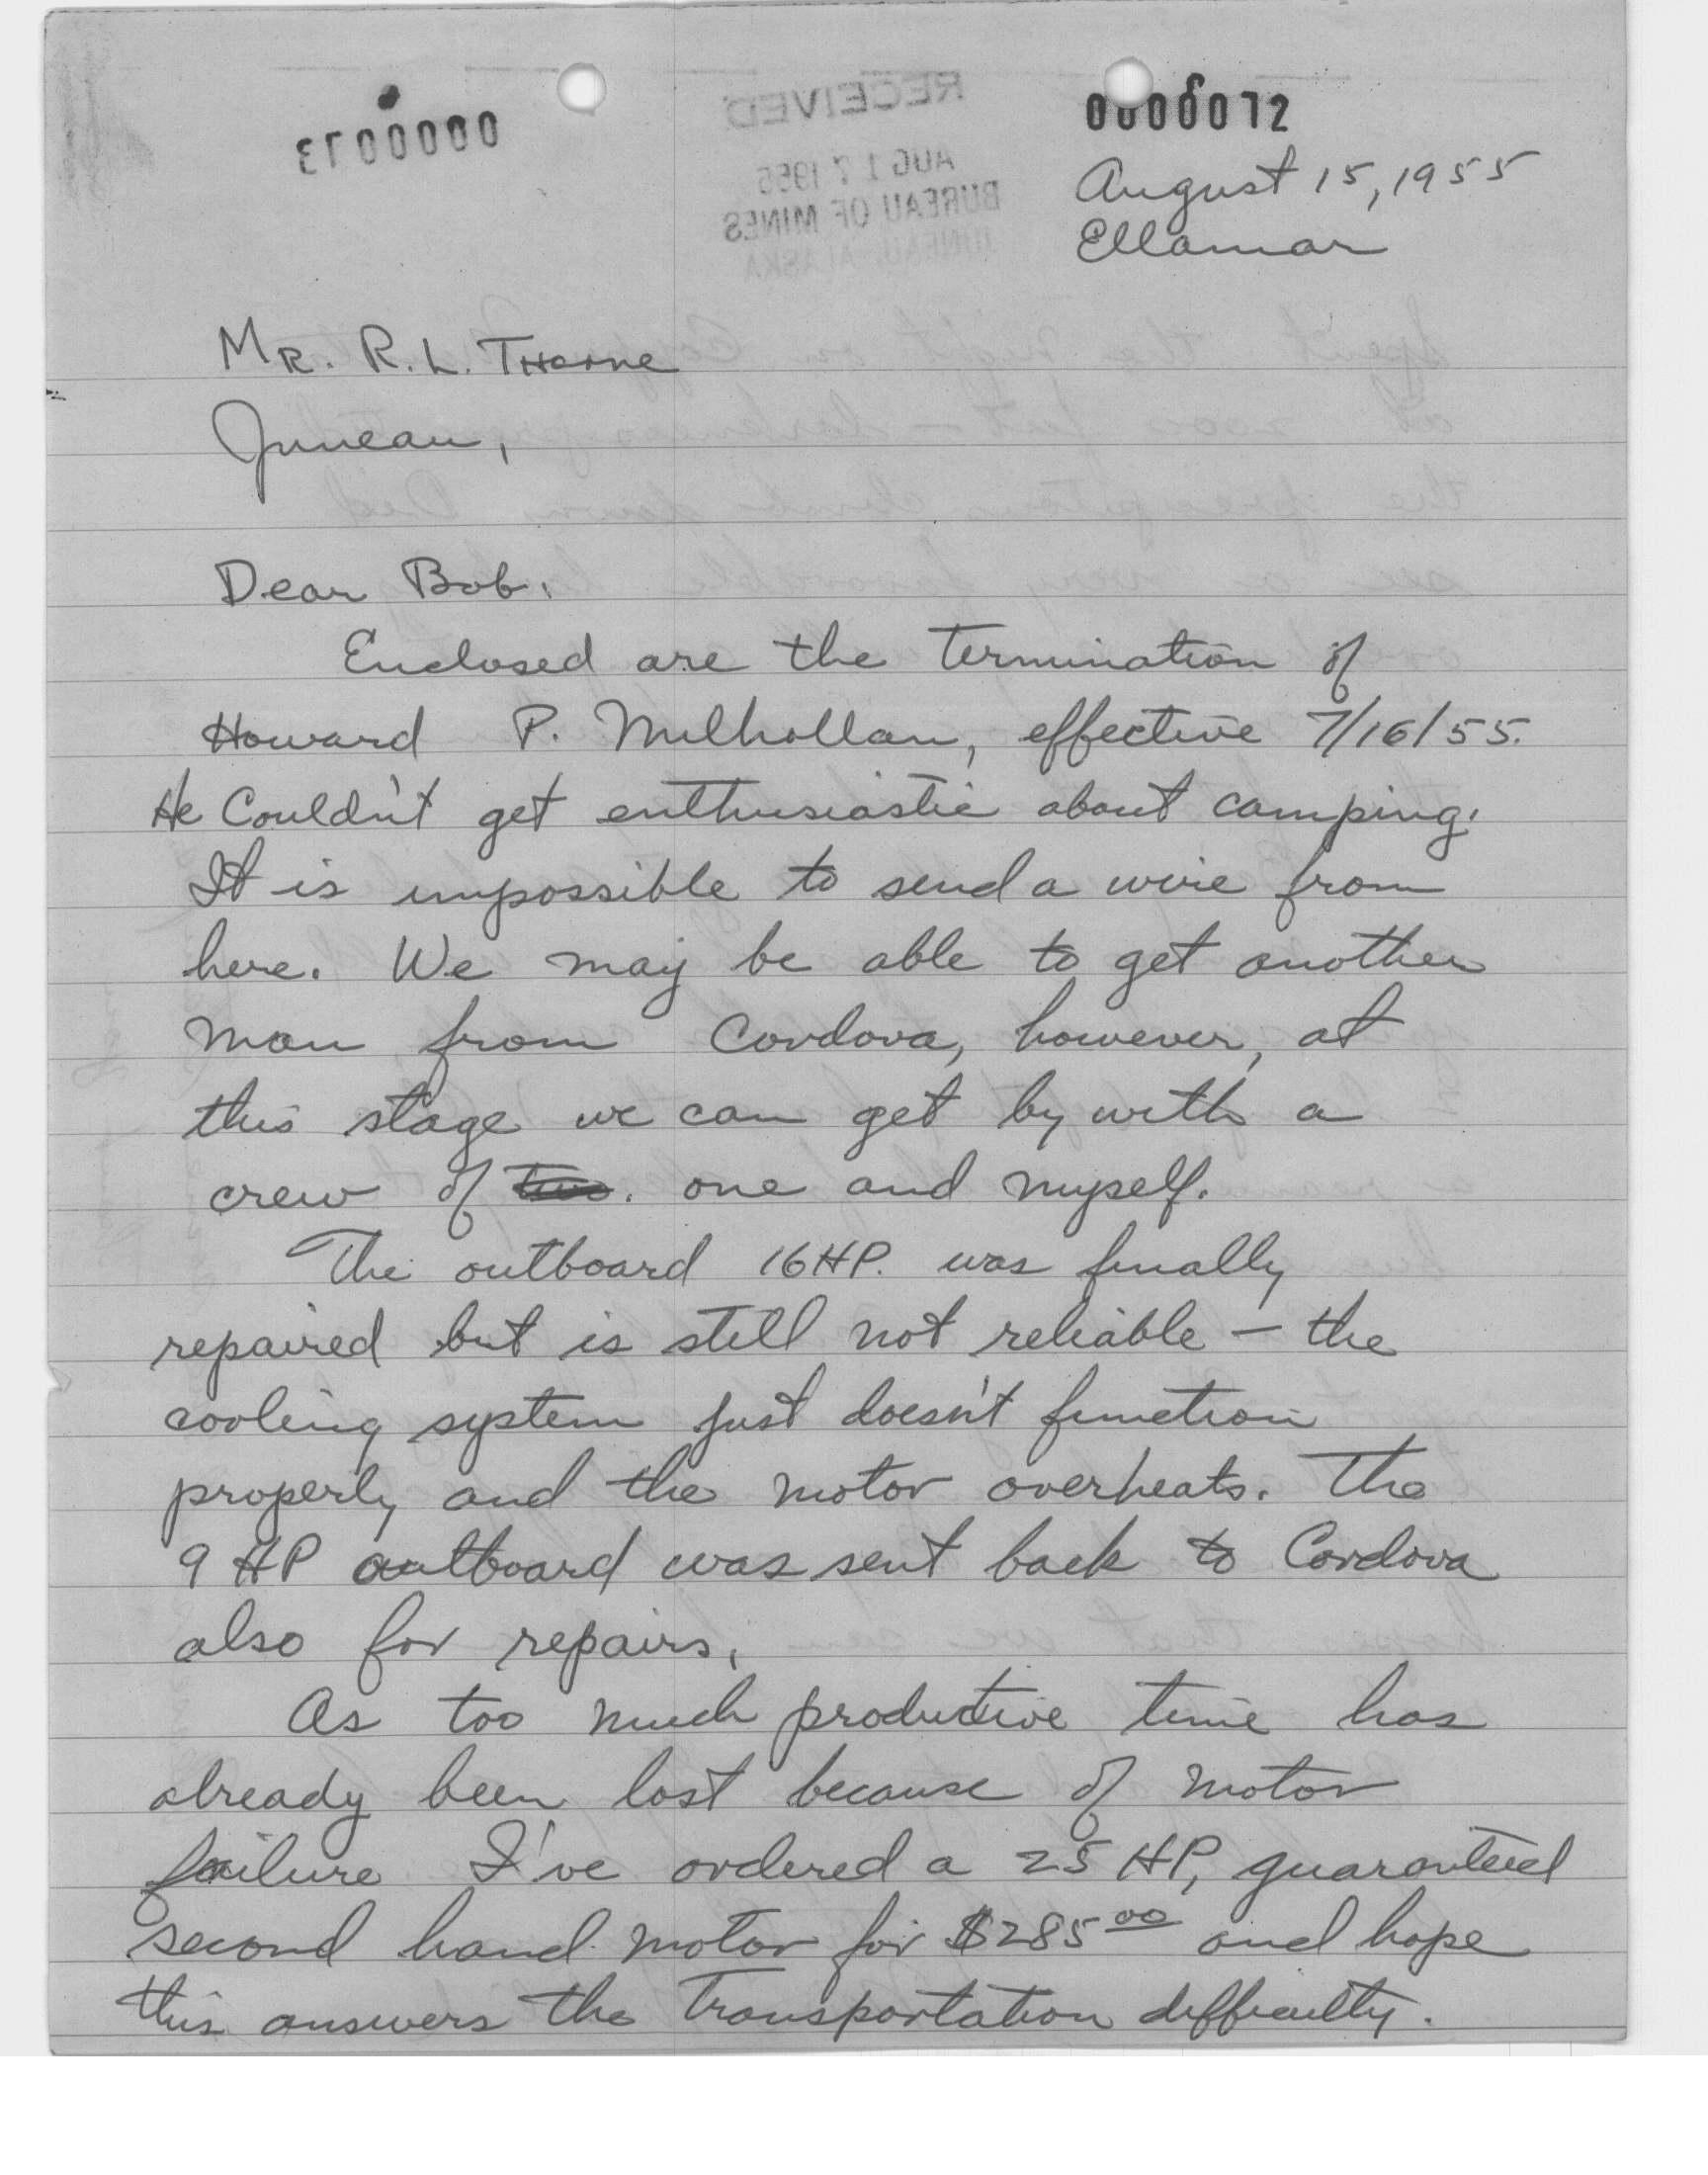 0000013
RECEIVED
AUG 17 1955
BUREAU OF MINES
JUNEAU, ALASKA
0000012
August 15, 1955
Ellamar
Mr. R.L. Thorne
Juneau,
Dear Bob:
Enclosed are the termination of
Howard P. Mulhollan, effective 7/16/55.
He Couldn't get enthusiastic about camping.
It is impossible to send a wire from
here. We may be able to get another
man from Cordova, however, at
this stage we can get by with a
crew of two. one and myself.
The outboard 16 HP. was finally
repaired but is still not reliable — the
cooling system just doesn't function
properly and the motor overheats. The
9 HP outboard was sent back to Cordova
also for repairs.
As too much productive time has
already been lost because of motor
failure I've ordered a 25 HP, guaranteed
second hand motor for $285 00 and hope
this answers the transportation difficulty.